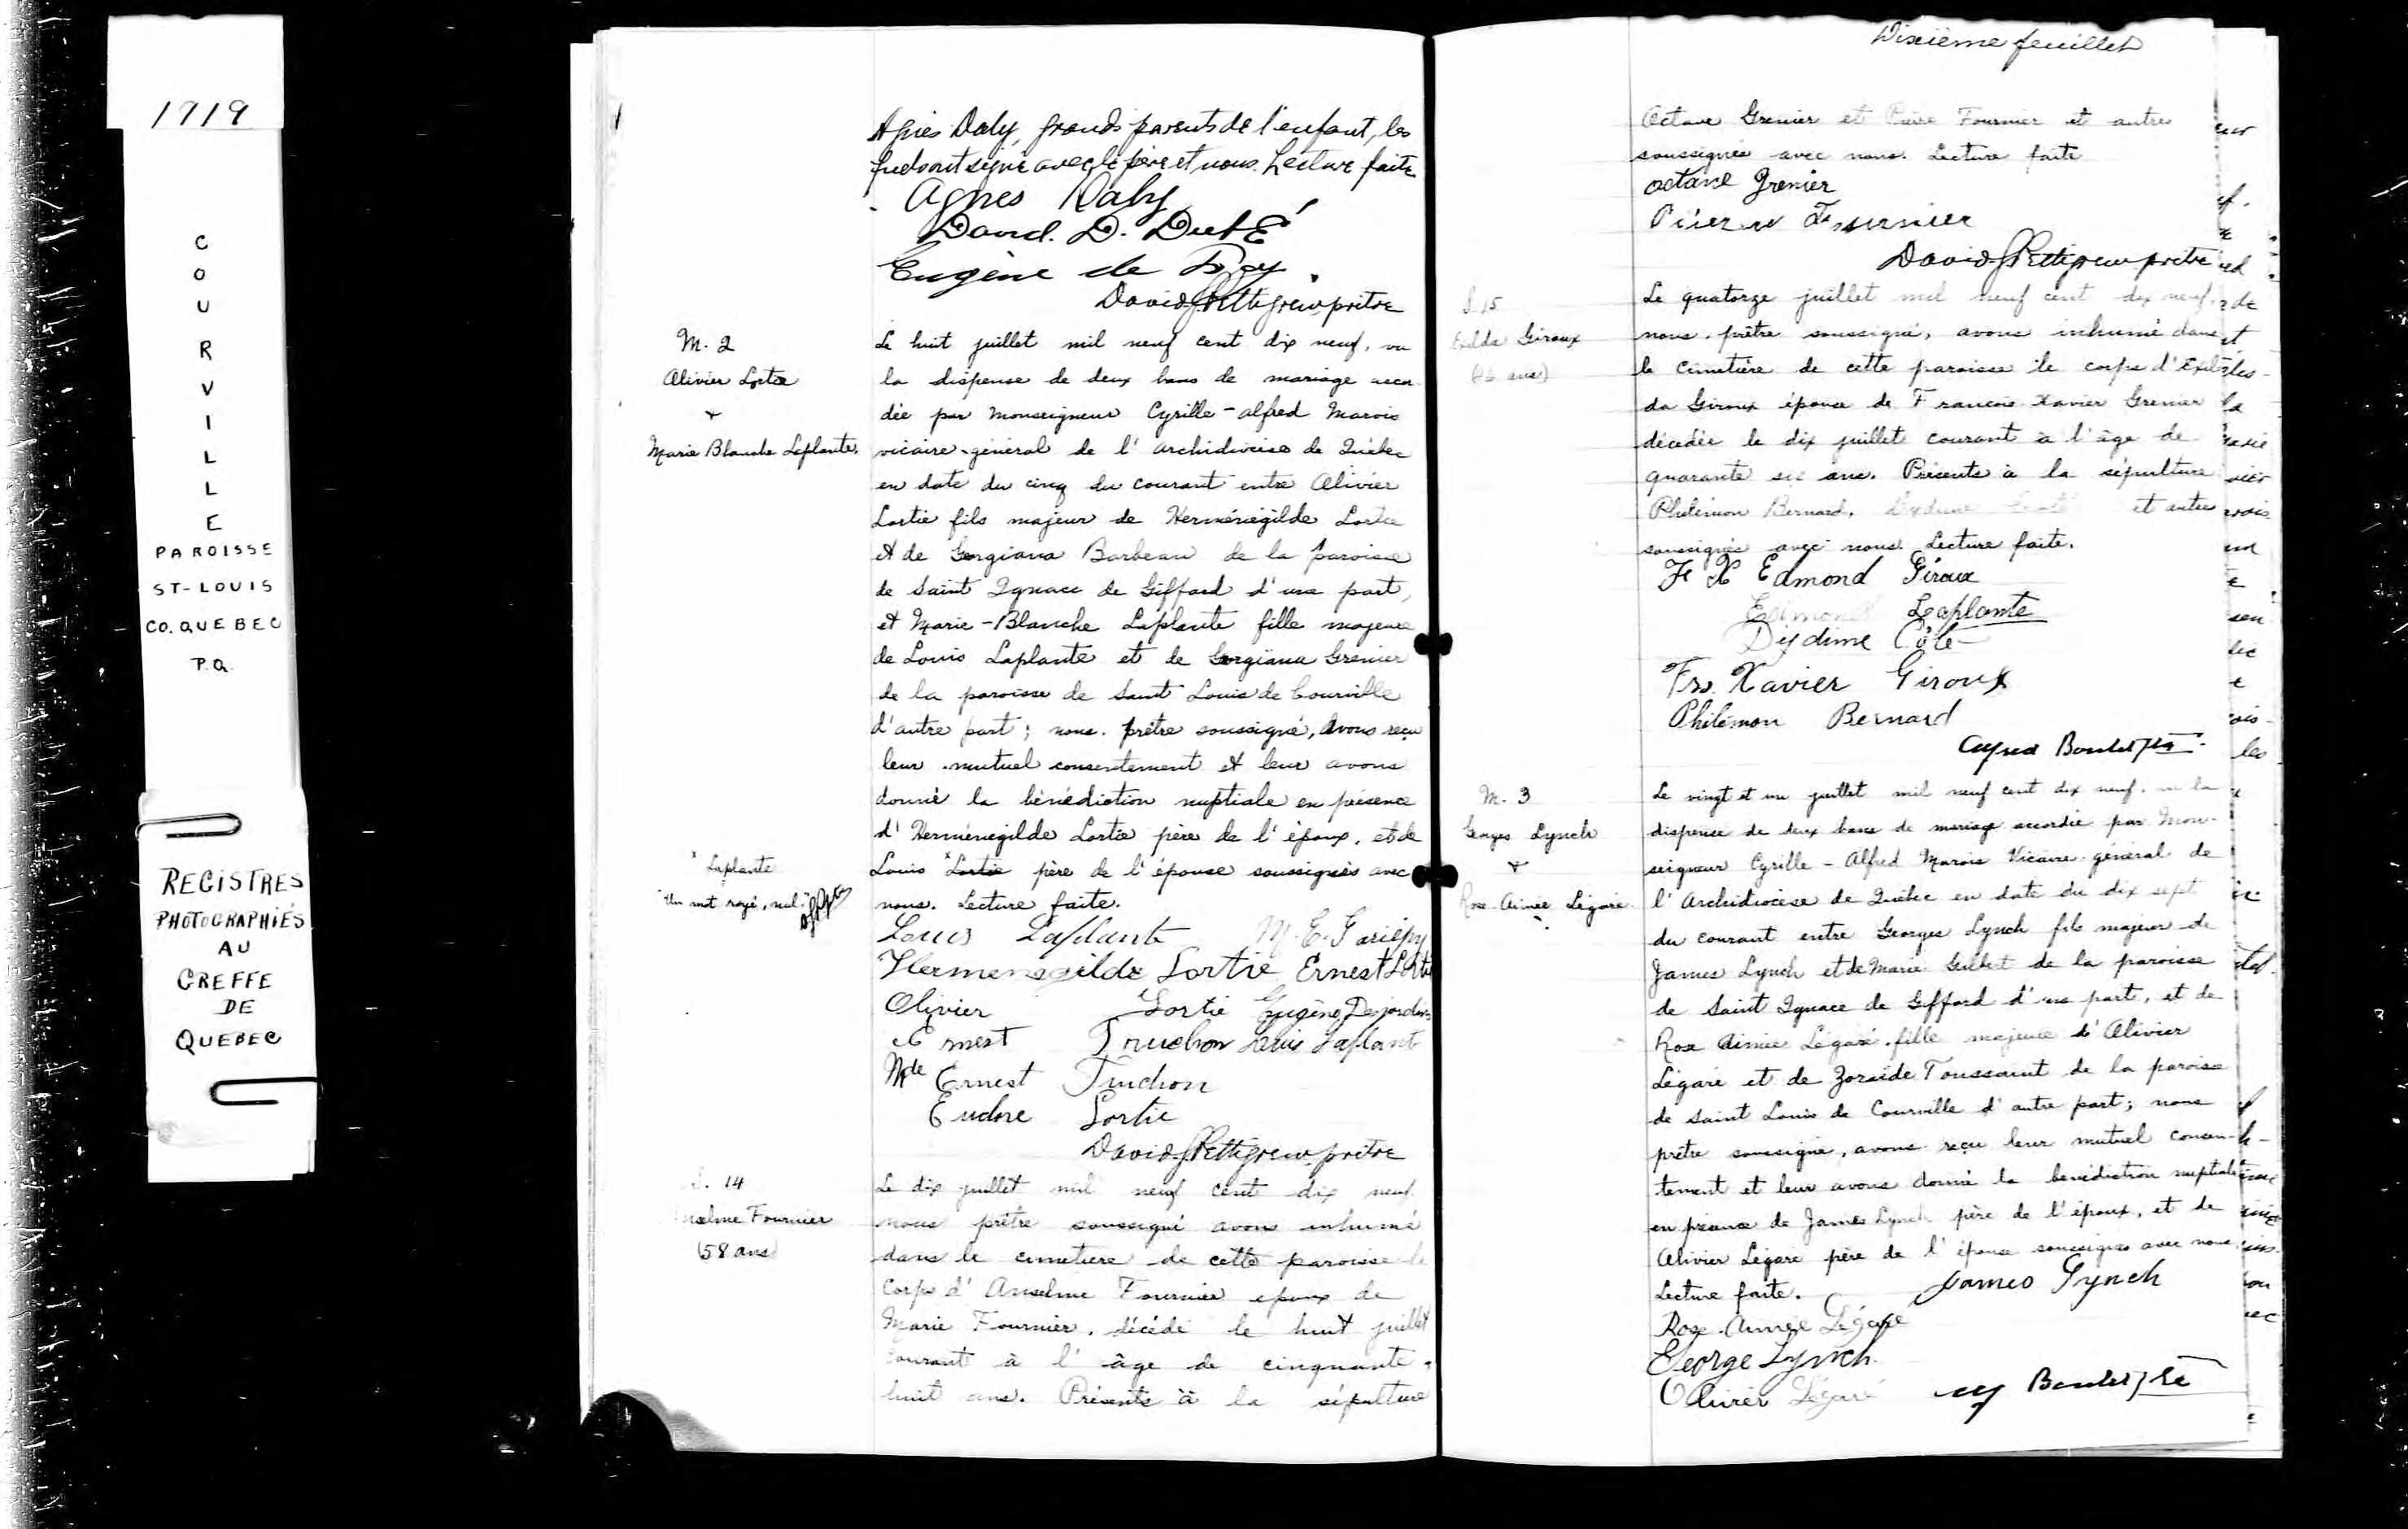 1919
COURVILLE
PAROISSE
ST-LOUIS
CO. QUEBEC
P.Q.
REGISTRES
PHOTOGRAPHIÉS
AU
GREFFE
DE
QUEBEC
Agnès Daly, grands parents de l'enfant, les
quels ont signé avec le père et nous. Lecture faite
Agnes Daly
David. D. Dubé
Eugène de
David Pettigrew, prêtre
M. 2
Olivier Lortie
&
Marie Blanche Laplante.
Le huit juillet mil neuf cent dix neuf, vu
la dispense de deux bans de mariage accor-
dée par Monseigneur Cyrille-Alfred Marois
vicaire-général de l'archidiocèse de Québec
en date du cinq du courant entre Olivier
Lortie fils majeur de Herménégilde Lortie
et de Georgiana Barbeau de la paroisse
de Saint Ignace de Giffard d'une part,
et Marie-Blanche Laplante fille majeure
de Louis Laplante et de Georgiana Grenier
de la paroisse de Saint Louis de Courville
d'autre part; nous, prêtre soussigné, avons reçu
leur mutuel consentement et leur avons
donné la bénédiction nuptiale en présence
d'Herménégilde Lortie père de l'époux, et de
x Laplante
Louis x Lortie père de l'épouse soussignés avec
Un mot rayé, nul.
nous. Lecture faite.
Louis Laplante M. E. Gariépy
Hermenegilde Lortie Ernest Lortie
Olivier Lortie Eugène Desjardins
Ernest Truchon Louis Laplante
Mde Ernest Truchon
Eudore Lortie
David Pettigrew, prêtre
S. 14
Anselme Fournier
(58 ans)
Le dix juillet mil neuf cent dix neuf
nous prêtre soussigné avons inhumé
dans le cimetière de cette paroisse le
corps d'Anselme Fournier époux de
Marie Fournier, décédé le huit juillet
courant à l'âge de cinquante-
huit ans. Présents à la sépulture
Dixième feuillet
Octave Grenier et Pierre Fournier et autres
soussignés avec nous. Lecture faite
Octave Grenier
Pierre Fournier
David Pettigrew prêtre
S. 15
Exilda Giroux
(46 ans)
Le quatorze juillet mil neuf cent dix neuf,
nous, prêtre soussigné, avons inhumé dans
le cimetière de cette paroisse le corps d'Exil-
da Giroux épouse de François-Xavier Grenier
décédée le dix juillet courant à l'âge de
quarante six ans. Présents à la sépulture
Philémon Bernard, Dydime et autres
soussignés avec nous. Lecture faite.
F X Edmond Giroux
Edmond Laplante
Dydime Côté
Frs. Xavier Giroux
Philémon Bernard
Alfred Boulet Ptr
M. 3
Georges Lynch
&
Rose-Aimée Légaré
Le vingt et un juillet mil neuf cent dix neuf, vu la
dispense de deux bans de mariage accordée par Mon-
seigneur Cyrille-Alfred Marois Vicaire-général de
l'Archidiocèse de Québec en date du dix sept
du courant entre Georges Lynch fils majeur de
James Lynch et de Marie Guilbert de la paroisse
de Saint Ignace de Giffard d'une part, et de
Rose Aimée Légaré, fille majeure d'Olivier
Légaré et de Zoraïde Toussaint de la paroisse
de Saint Louis de Courville d'autre part; nous
prêtre soussigné, avons reçu leur mutuel consen-
tement et leur avons donné la bénédiction nuptiale
en présence de James Lynch père de l'époux, et de
Olivier Légaré père de l'épouse soussignés avec nous.
Lecture faite. James Lynch
Rose-Aimée Légaré
George Lynch
Olivier Légaré Boulet Ptre